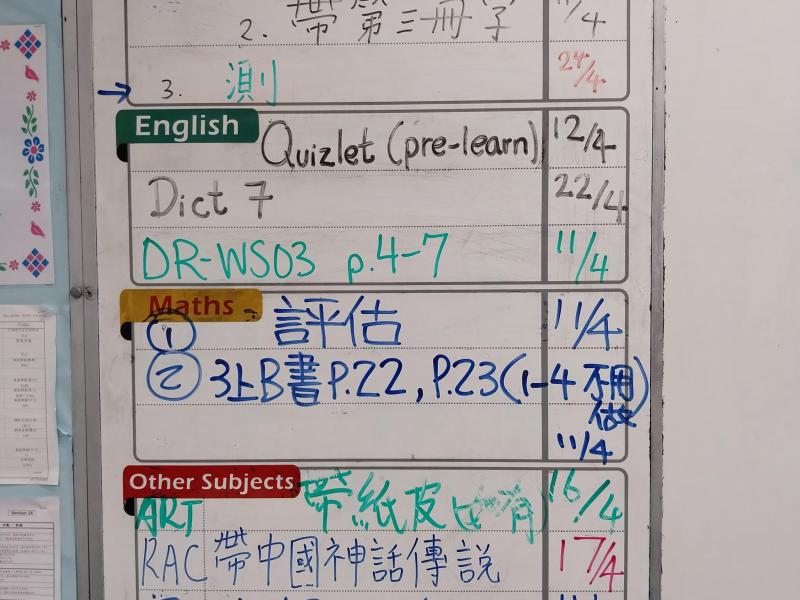 2. 帶第三冊字 11/4
→ 3. 測 24/4
English Quizlet (pre-learn) 12/4
Dict 7 22/4
DR-WS03 p.4-7 11/4
Maths
① 評估 11/4
② 3上B書 P.22, P.23(1-4 不用做) 11/4
Other Subjects
ART 帶紙皮 16/4
RAC 帶中國神話傳說 17/4